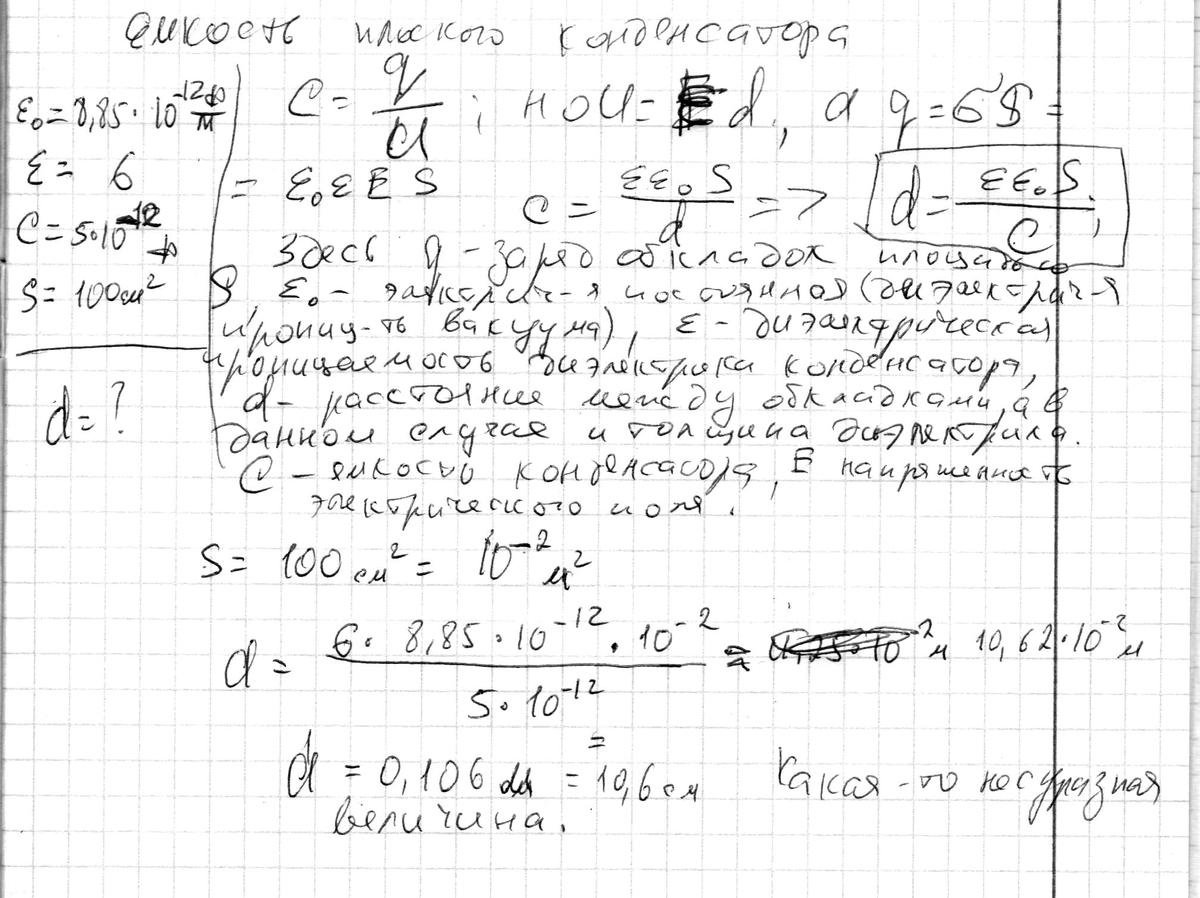 Ёмкость плоского конденсатора
ε₀ = 8,85·10⁻¹² ф/м
ε = 6
C = 5·10⁻¹² ф
S = 100 см²
d = ?
C = q/U; но U = E d, а q = σS =
= ε₀εES C = εε₀S/d => d = εε₀S/C;
Здесь q – заряд обкладок площадью
S, ε₀ – электрич-я постоянная (диэлектрич-я
прониц-ть вакуума), ε – диэлектрическая
проницаемость диэлектрика конденсатора,
d – расстояние между обкладками, а в
данном случае и толщина диэлектрика.
C – ёмкость конденсатора, E напряженность
электрического поля.
S = 100 см² = 10⁻² м²
d = 6·8,85·10⁻¹²·10⁻² / 5·10⁻¹² = 10,62·10⁻² м =
d = 0,106 м = 10,6 см Какая-то несуразная
величина.